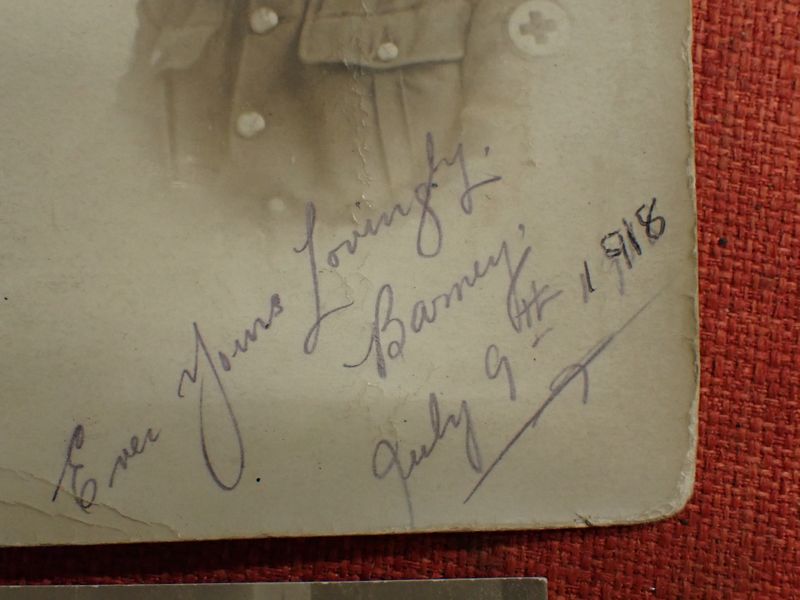 Ever Yours Lovingly.
Barney.
July 9th 1918